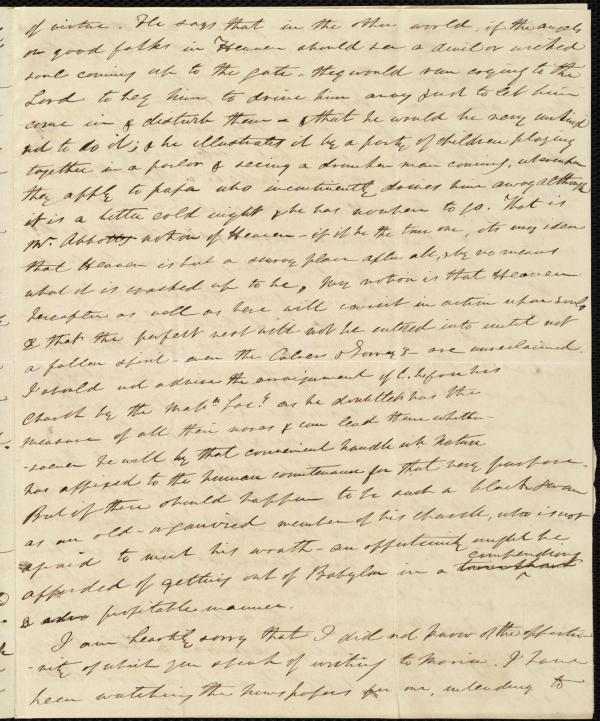 of virtue. He says that in the other world, if the angels
or good folks in Heaven should see a devil or wicked
soul coming up to the gate - they would run crying to the
Lord to beg him to drive him away & not to let him
come in & disturb them - & that he would be very unkind
not to do it; & he illustrates it by a party of children playing
together in a parlor & seeing a drunken man coming, whereupon
they apply to papa who incontinently drives him away although
it is a bitter cold night & he has nowhere to go. That is
Mr. Abbotts notion of Heaven - if it be the true one, it's my idea
that Heaven is but a scurvy place after all, & by no means
what it is cracked up to be. My notion is that Heaven
hereafter as well as here will consist in action upon souls,
& that the perfect rest will not be entered into until not
a fallen spirit - even the Calvers & - are unreclaimed.
I should not advise the arraignment of C. before his
Church by the Mass. Soc.y as he doubtless has the
measure of all their noses & can lead them whither-
-soever he will by that convenient handle wh. Nature
has affixed to the human countenance for that very purpose.
But if there should happen to be such a black swan
as an old-organized member of his church, who is not
afraid to meet his wrath - an opportunity might be
afforded of getting out of Babylon in a compendious
& profitable manner.
I am heartily sorry that I did not know of the opportu-
-nity of which you speak of writing to Maria. I have
been watching the newspapers for one, intending to